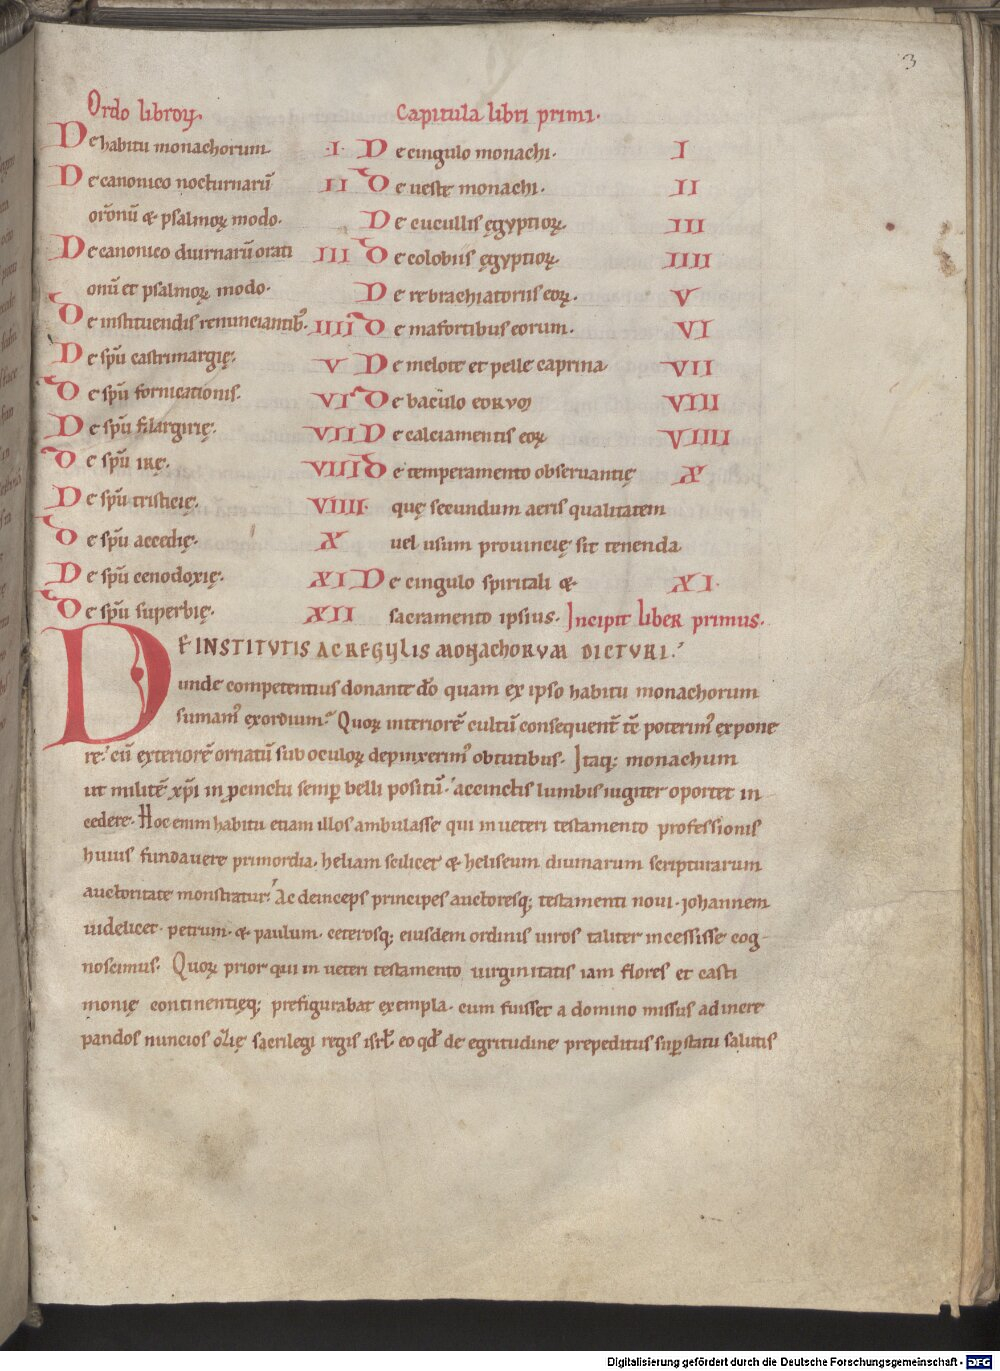 3
Ordo libroꝝ.
De habitu monachorum. ·I·
De canonico nocturnarū II
or̄onū & psalmoꝝ modo.
De canonico diurnarū orati III
onū et psalmoꝝ modo.
De instituendis renunciantib; IIII
De sp̄u castrimargię. V
De sp̄u fornicationis. VI
De sp̄u filargirię. VII
De sp̄u irę. VIII
De sp̄u tristicię. VIIII.
De sp̄u accedię. X
De sp̄u cenodoxię. XI
De sp̄u superbię. XII
Capitula libri primi.
De cingulo monachi. I
De ueste monachi. II
De cucullis ęgyptioꝝ. III
De colobiis ęgyptioꝝ. IIII
De rebrachiatoriis eoꝝ. V
De mafortibus eorum. VI
De melote et pelle caprina. VII
De baculo eorum VIII
De calciamentis eoꝝ VIIII
De temperamento obseruantię X
quę secundum aeris qualitatem
uel usum prouincię sit tenenda.
De cingulo spiritali & XI.
sacramento ipsius. Incipit liber primus.
DE INSTITUTIS AC REGULIS MONACHORUM DICTURI.
unde competentius donante dō quam ex ipso habitu monachorum
sumam᷒ exordium. Quoꝝ interiorē cultū consequent̄ tē poterim᷒ expone
re. cū exteriorē ornatū sub oculoꝝ depinxerim᷒ obtutibus. Itaq; monachum
ut militē xp̄i in ꝓcinctu semꝑ belli positū. accinctis lumbis iugiter oportet in
cedere. Hoc enim habitu etiam illos ambulasse qui in ueteri testamento professionis
huius fundauere primordia. heliam scilicet & heliseum diuinarum scripturarum
auctoritate monstratur. Ac deinceps principes auctoresq; testamenti noui. iohannem
uidelicet. petrum. & paulum. ceterosq; eiusdem ordinis uiros taliter incessisse cog-
noscimus. Quoꝝ prior qui in ueteri testamento uirginitatis iam flores et casti
monię continentięq; prefigurabat exempla. cum fuisset a domino missus ad incre
pandos nuncios o℅zię sacrilegi regis isrl̄. eo qđ de egritudine prepeditus suꝑ statu salutis
Digitalisierung gefördert durch die Deutsche Forschungsgemeinschaft - DFG